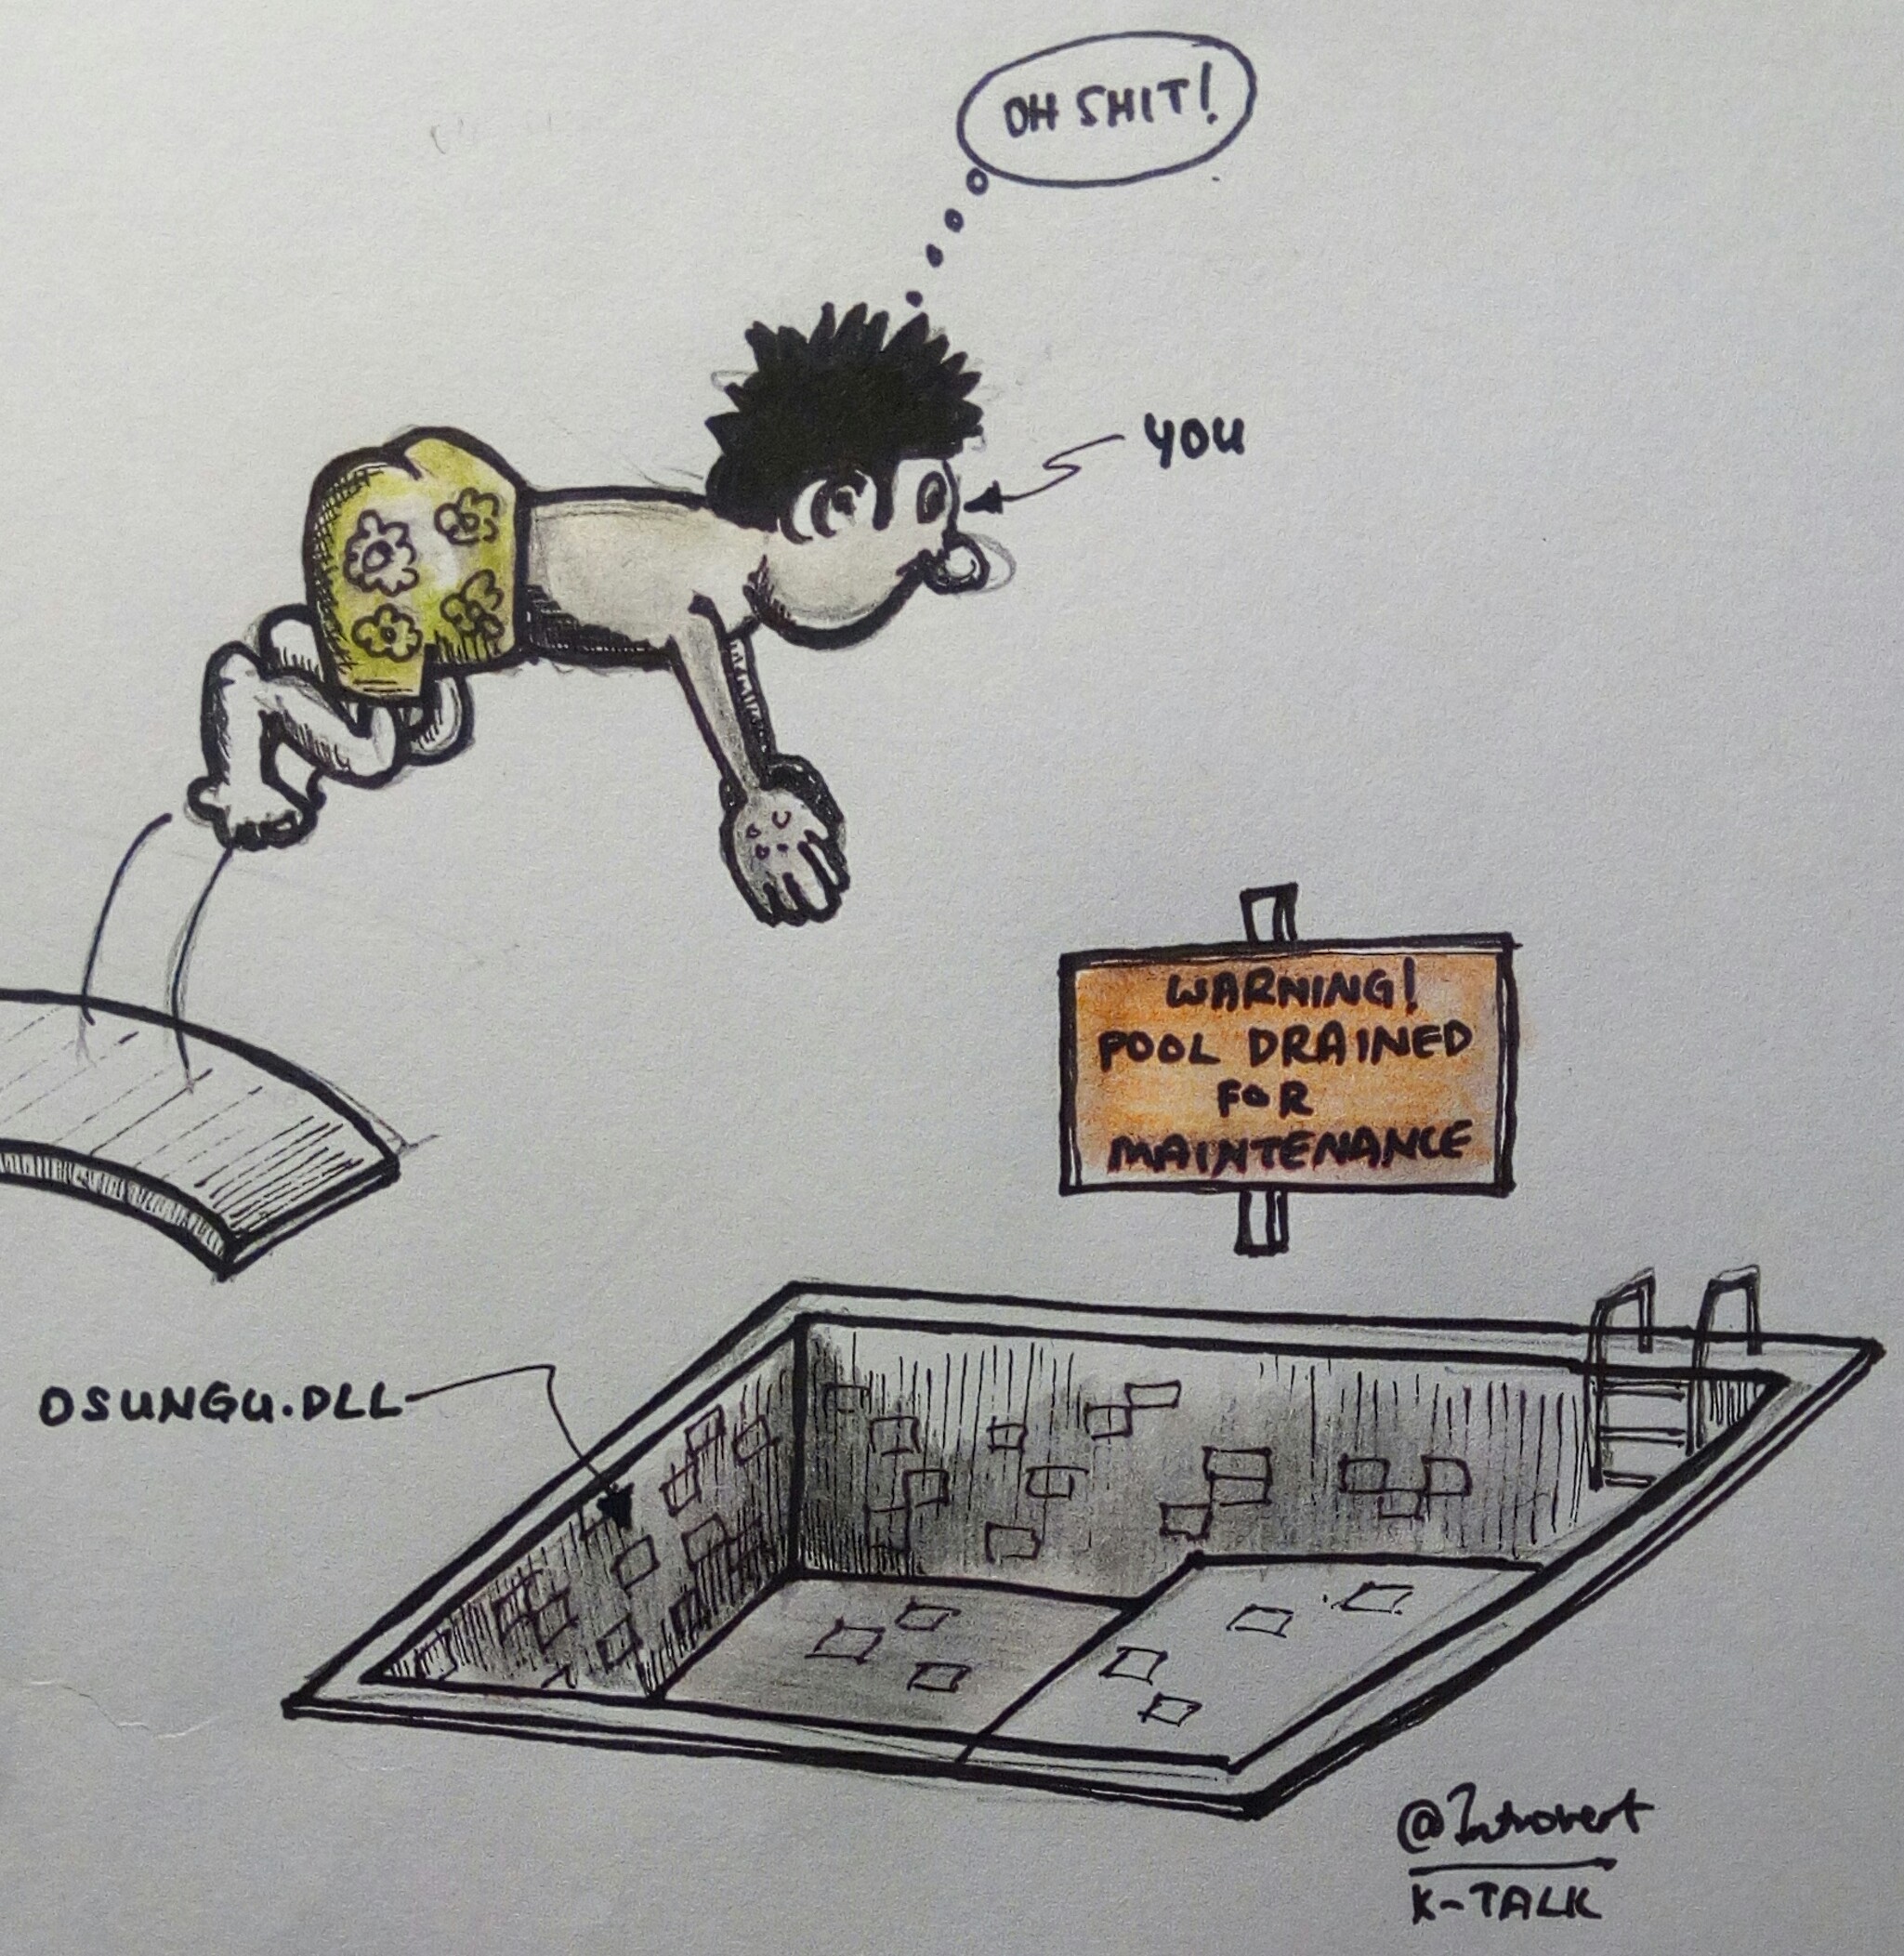 OH SHIT!
YOU
WARNING!
POOL DRAINED
FOR
MAINTENANCE
OSUNGU.DLL
@Introvert
K-TALK